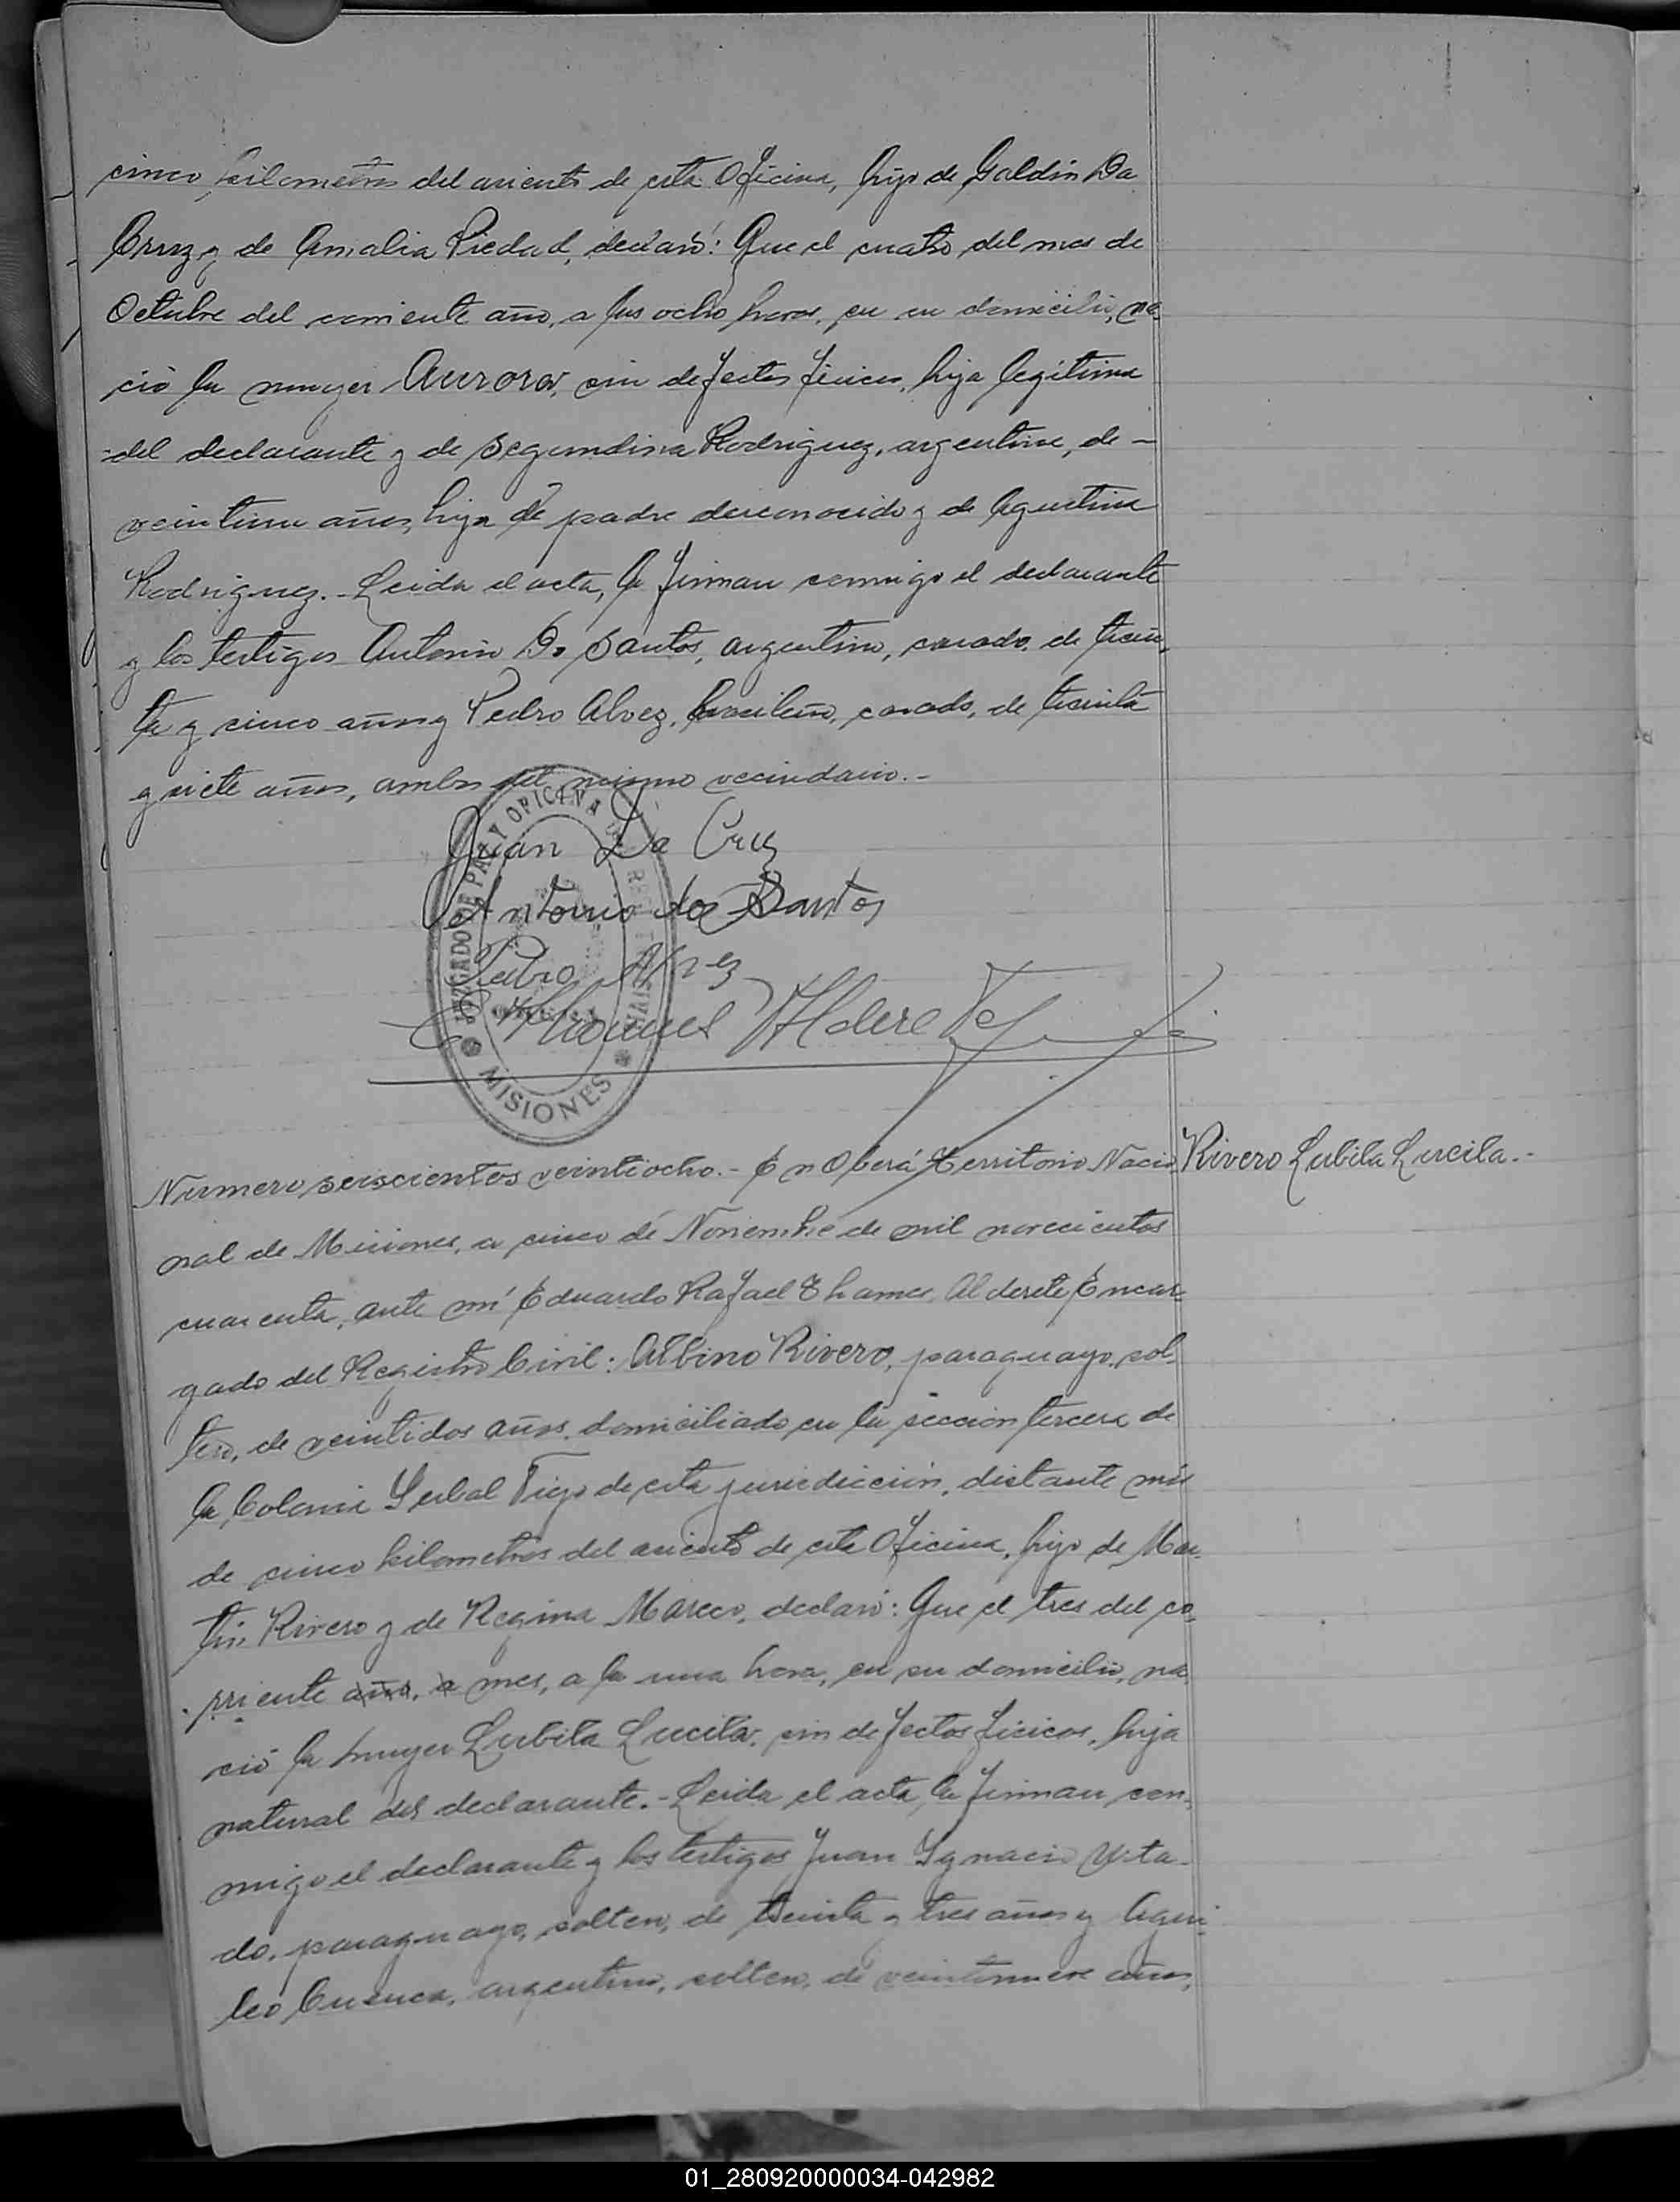 cinco kilometros del asiento de esta Oficina, hijo de Galdin Da
Cruz y de Amalia Piedad, declaró: Que el cuatro del mes de
Octubre del corriente año, a las ocho horas, en su domicilio, na-
ció la mujer Aurora, sin defectos fisicos, hija legítima
del declarante y de Segundina Rodriguez, argentina, de -
veintiun años, hija de padre desconocido y de Agustina
Rodriguez. - Leida el acta, la firman conmigo el declarante
y los testigos Antonio Do Santos, argentino, casado, de trein-
ta y cinco años y Pedro Alvez, brasileño, casado, de treinta
y siete años, ambos del mismo vecindario. -
Juan Da Cruz
Antonio dos Santos
Pedro Alvez
JUZGADO DE PAZ Y OFICINA REG CIVIL
MISIONES
Numero seiscientos veintiocho. - En Oberá Territorio Nacio-
Rivero Lubila Lucila. -
nal de Misiones, a cinco de Noviembre de mil novecientos
cuarenta, ante mí Eduardo Rafael Thames Alderete Encar-
gado del Registro Civil: Albino Rivero, paraguayo, sol-
tero, de veintidos años, domiciliado en la seccion tercera de
la Colonia Yerbal Viejo de esta jurisdicción, distante más
de cinco kilometros del asiento de esta Oficina, hijo de Mar-
tin Rivero y de Regina Mareco, declaró: Que el tres del co-
rriente año, a mes, a la una hora, en su domicilio, na-
ció la mujer Lubila Lucila, sin defectos fisicos, hija
natural del declarante. - Leida el acta, la firman con-
migo el declarante y los testigos Juan Ygnacio
do, paraguayo, soltero, de treinta y tres años y
leo Cuenca, argentino, soltero, de veintinueve años,
01_280920000034-042982